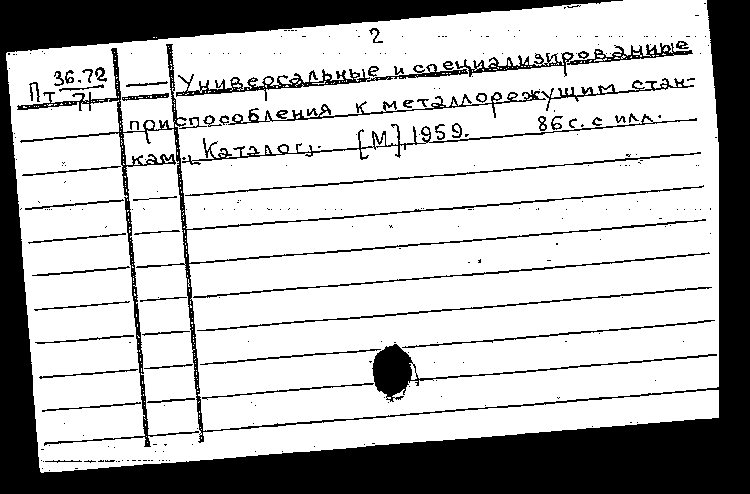 2
Пт 36.72/71 — Универсальные и специализированные
приспособления к металлорежущим стан-
кам. Каталог. [М.], 1959. 86 с. с илл.